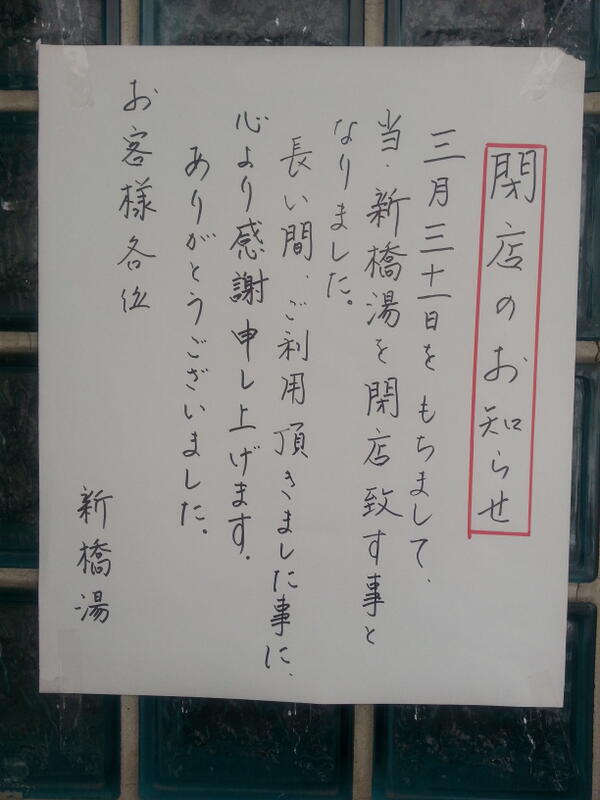 閉店のお知らせ
三月三十一日をもちまして、
当、新橋湯を閉店致す事と
なりました。
長い間、ご利用頂きました事に、
心より感謝申し上げます。
ありがとうございました。
お客様各位
新橋湯